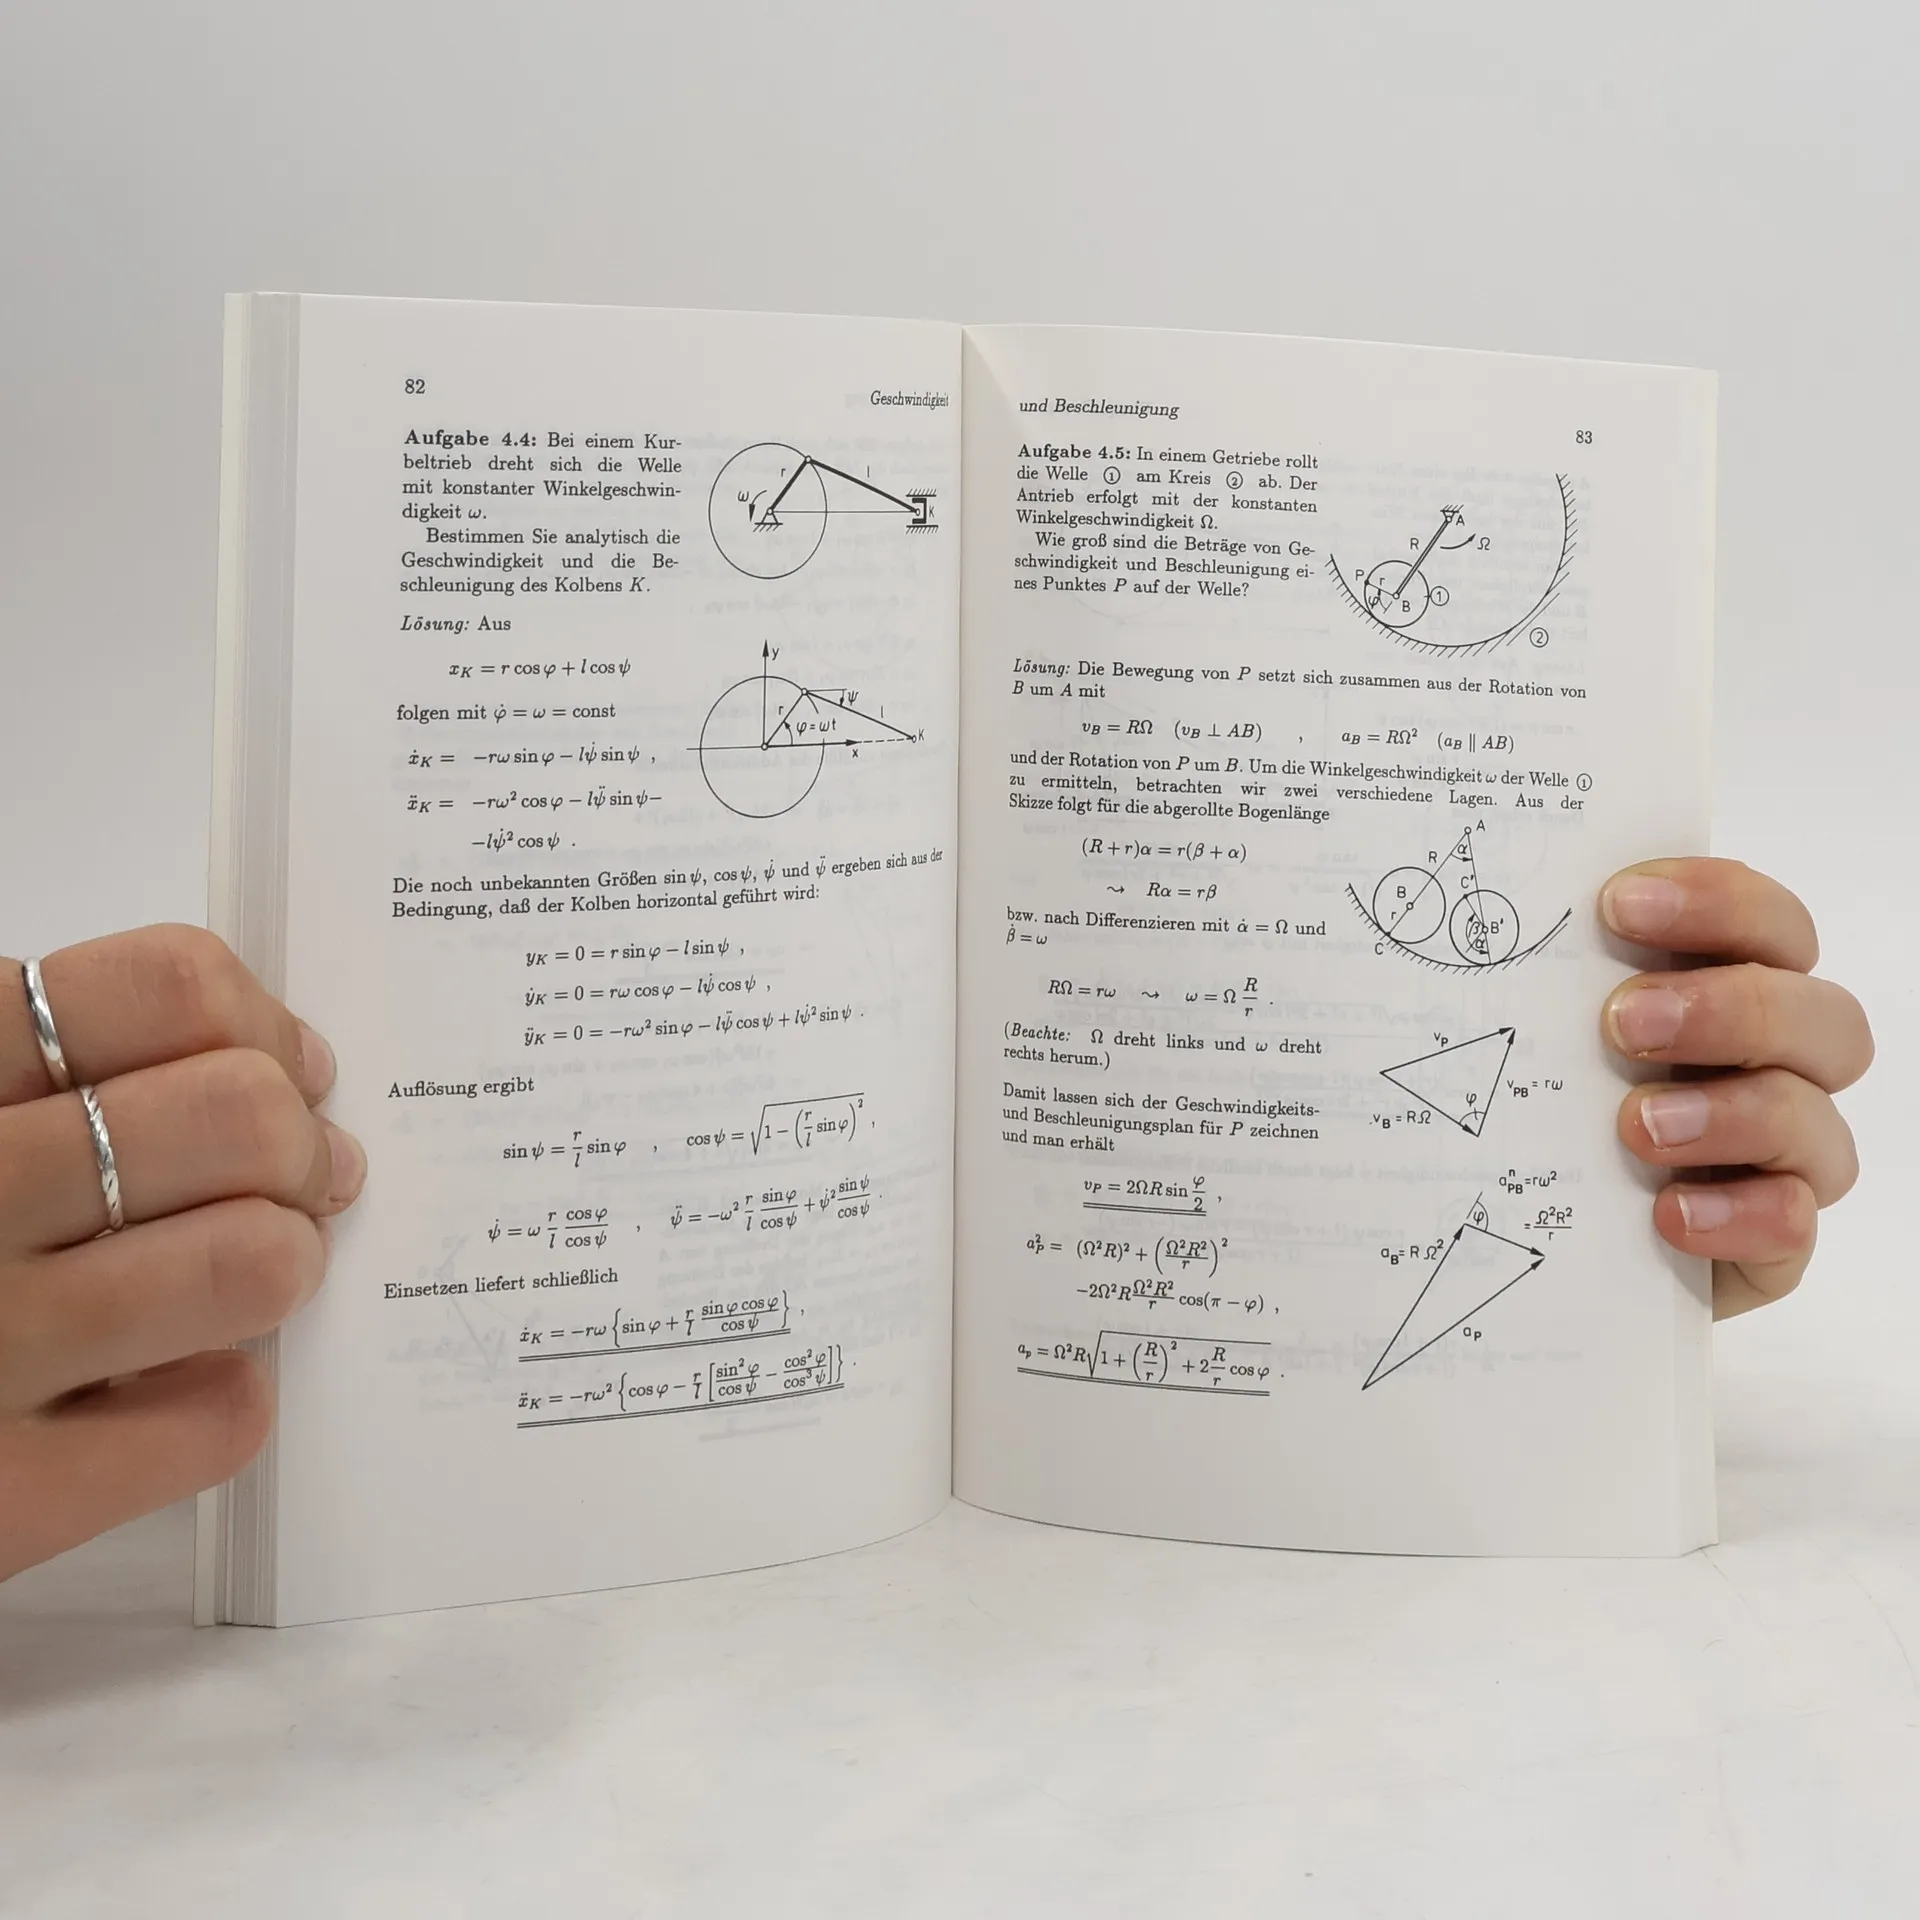 82
Geschwindigkeit
Aufgabe 4.4: Bei einem Kur-
beltrieb dreht sich die Welle
mit konstanter Winkelgeschwin-
digkeit ω.
Bestimmen Sie analytisch die
Geschwindigkeit und die Be-
schleunigung des Kolbens K.
r
l
ω
K
Lösung: Aus
x_K = r cos φ + l cos ψ
folgen mit φ̇ = ω = const
ẋ_K = −rω sin φ − lψ̇ sin ψ ,
ẍ_K = −rω² cos φ − lψ̈ sin ψ−
−lψ̇² cos ψ .
y
ψ
r
l
φ = ωt
K
x
Die noch unbekannten Größen sin ψ, cos ψ, ψ̇ und ψ̈ ergeben sich aus der
Bedingung, daß der Kolben horizontal geführt wird:
y_K = 0 = r sin φ − l sin ψ ,
ẏ_K = 0 = rω cos φ − lψ̇ cos ψ ,
ÿ_K = 0 = −rω² sin φ − lψ̈ cos ψ + lψ̇² sin ψ .
Auflösung ergibt
sin ψ = r/l sin φ , cos ψ = √(1 − (r/l sin φ)²) ,
ψ̇ = ω r/l cos φ/cos ψ , ψ̈ = −ω² r/l sin φ/cos ψ + ψ̇² sin ψ/cos ψ .
Einsetzen liefert schließlich
ẋ_K = −rω {sin φ + r/l sin φ cos φ/cos ψ} ,
ẍ_K = −rω² {cos φ − r/l [sin² φ/cos ψ − cos² φ/cos³ ψ]} .
und Beschleunigung
83
Aufgabe 4.5: In einem Getriebe rollt
die Welle ① am Kreis ② ab. Der
Antrieb erfolgt mit der konstanten
Winkelgeschwindigkeit Ω.
Wie groß sind die Beträge von Ge-
schwindigkeit und Beschleunigung ei-
nes Punktes P auf der Welle?
A
R
Ω
P
r
φ
B
①
②
Lösung: Die Bewegung von P setzt sich zusammen aus der Rotation von
B um A mit
v_B = RΩ (v_B ⊥ AB) , a_B = RΩ² (a_B ∥ AB)
und der Rotation von P um B. Um die Winkelgeschwindigkeit ω der Welle ①
zu ermitteln, betrachten wir zwei verschiedene Lagen. Aus der
Skizze folgt für die abgerollte Bogenlänge
(R + r)α = r(β + α)
⇝ Rα = rβ
bzw. nach Differenzieren mit α̇ = Ω und
β̇ = ω
RΩ = rω ⇝ ω = Ω R/r .
A
R
α
C'
B
r
β
B'
α
C
(Beachte: Ω dreht links und ω dreht
rechts herum.)
Damit lassen sich der Geschwindigkeits-
und Beschleunigungsplan für P zeichnen
und man erhält
v_P = 2ΩR sin φ/2 ,
a_P² = (Ω²R)² + (Ω²R²/r)²
−2Ω²R Ω²R²/r cos(π − φ) ,
a_p = Ω²R√(1 + (R/r)² + 2 R/r cos φ) .
v_P
φ
v_PB = rω
v_B = RΩ
a_PB^n = rω²
= Ω²R²/r
φ
a_B = RΩ²
a_P